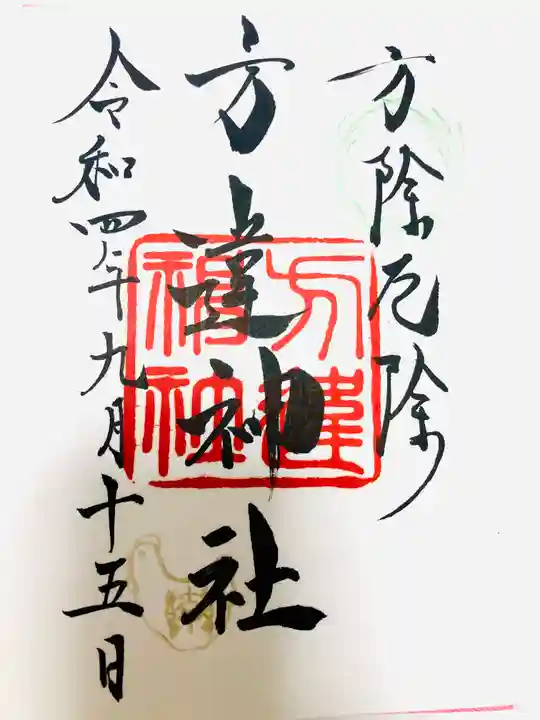 方除厄除
方違神社
令和四年九月十五日
方違神社